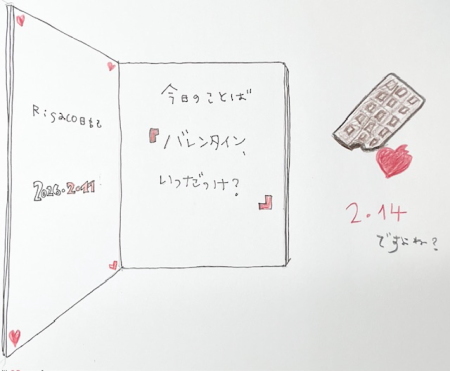 Risaco日記
2026.2.11
今日のことば
『バレンタイン、
いつだっけ?』
2.14
ですよね?